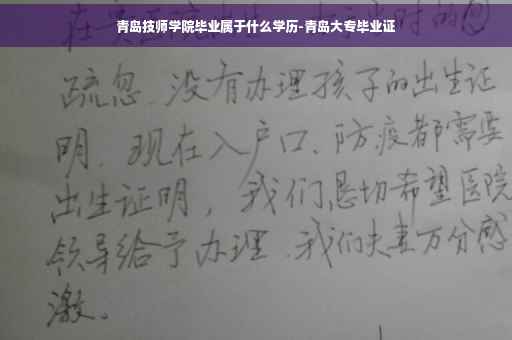 青岛技师学院毕业属于什么学历-青岛大专毕业证
疏忽、没有办理孩子的出生证
明、现在入户口、防疫都需要
出生证明，我们恳切希望医院
领导给予办理、我们夫妻万分感
激。